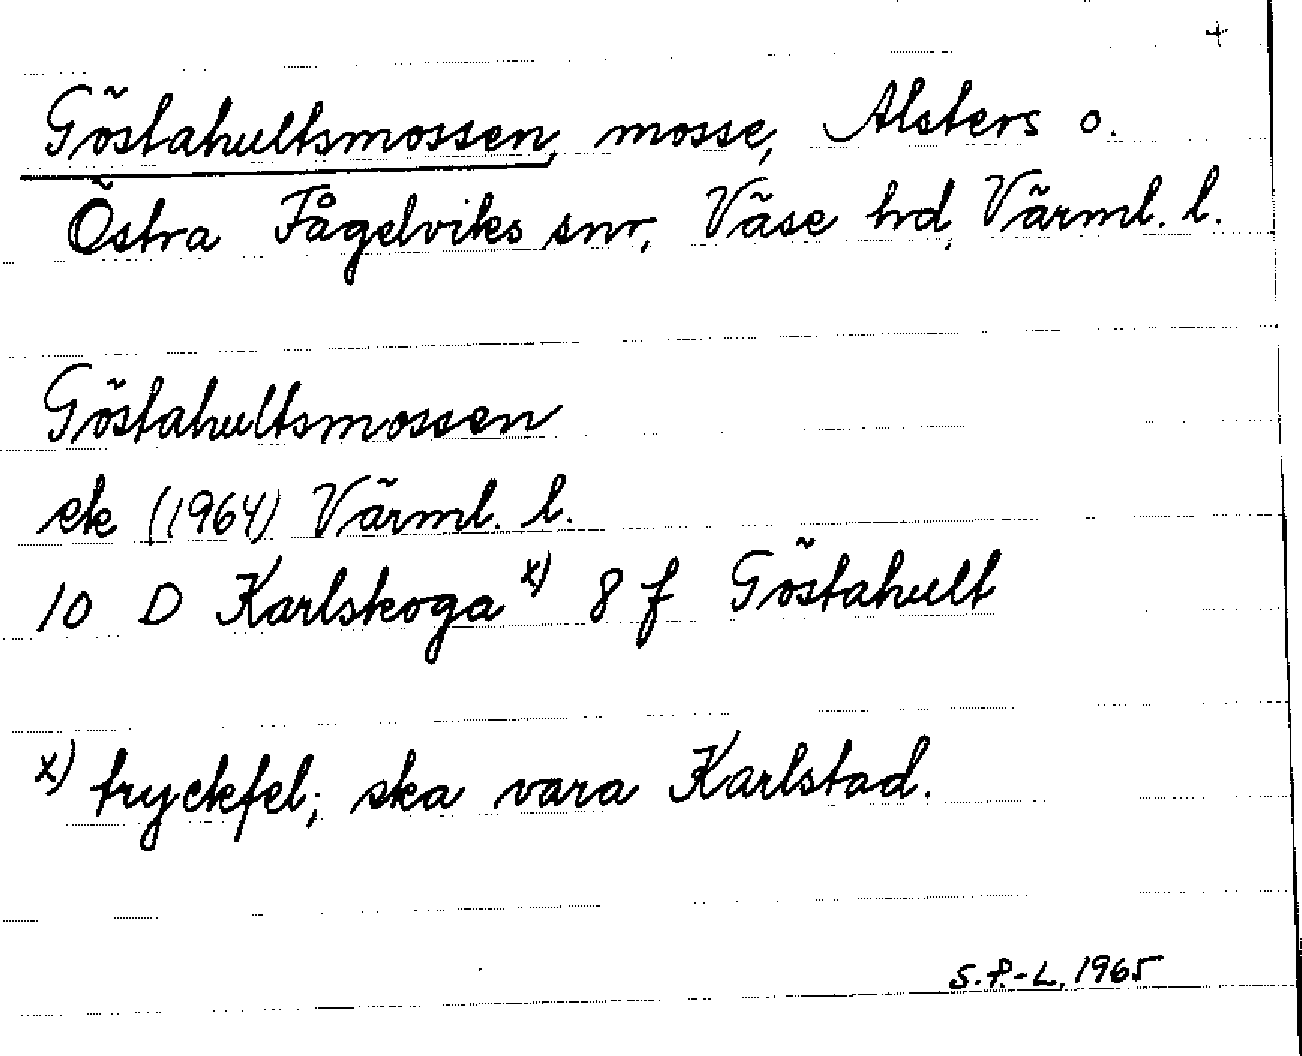 +
Göstahultsmossen, mosse, Alsters o.
Östra Fågelviks snr, Väse hd, Värml. l.
Göstahultsmossen
ek (1964) Värml. l.
10 D Karlskoga x) 8 f Göstahult
x) tryckfel; ska vara Karlstad.
S.P.-L. 1965